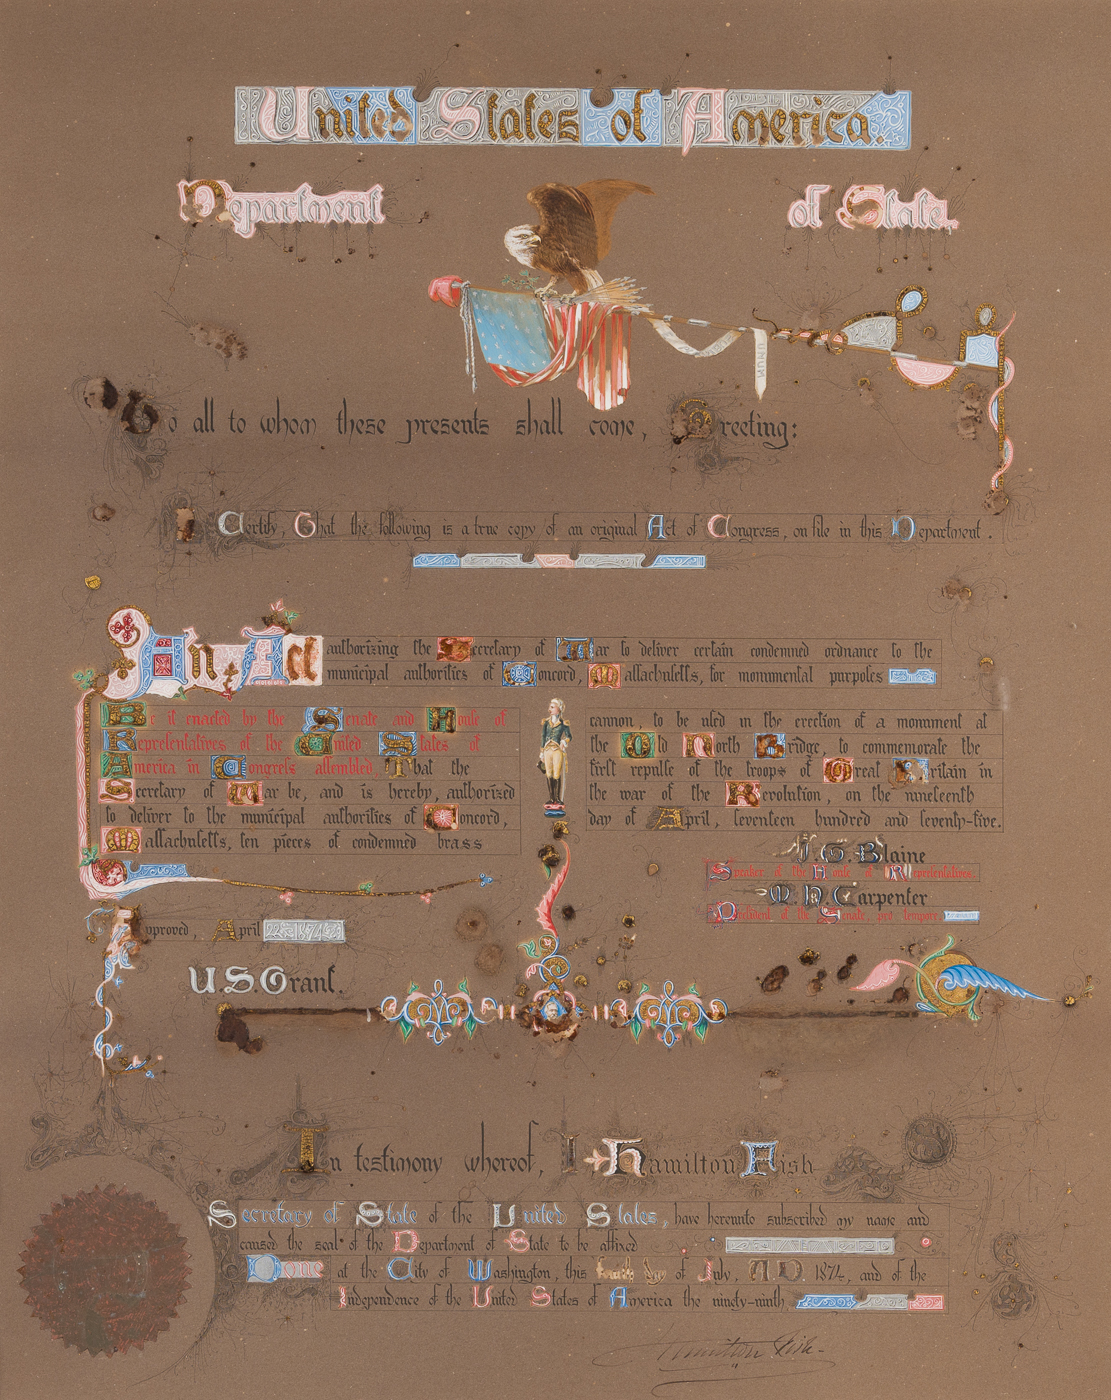 United States of America.
Department of State,
UNION
To all to whom these presents shall come, Greeting:
Certify, That the following is a true copy of an original Act of Congress, on file in this Department.
An Act authorizing the Secretary of War to deliver certain condemned ordnance to the
municipal authorities of Concord, Massachusetts, for monumental purposes
Be it enacted by the Senate and House of
Representatives of the United States of
America in Congress assembled, That the
Secretary of War be, and is hereby, authorized
to deliver to the municipal authorities of Concord,
Massachusetts, ten pieces of condemned brass
cannon, to be used in the erection of a monument at
the Old North Bridge, to commemorate the
first repulse of the troops of Great Britain in
the war of the Revolution, on the nineteenth
day of April, seventeen hundred and seventy-five.
J. G. Blaine
Speaker of the House of Representatives.
M. H. Carpenter
President of the Senate, pro tempore
Approved, April 22, 1874.
U.S. Grant.
In testimony whereof, I Hamilton Fish
Secretary of State of the United States, have hereunto subscribed my name and
caused the seal of the Department of State to be affixed
Done at the City of Washington, this fourth day of July, A.D. 1874, and of the
Independence of the United States of America the ninety-ninth
Hamilton Fish.